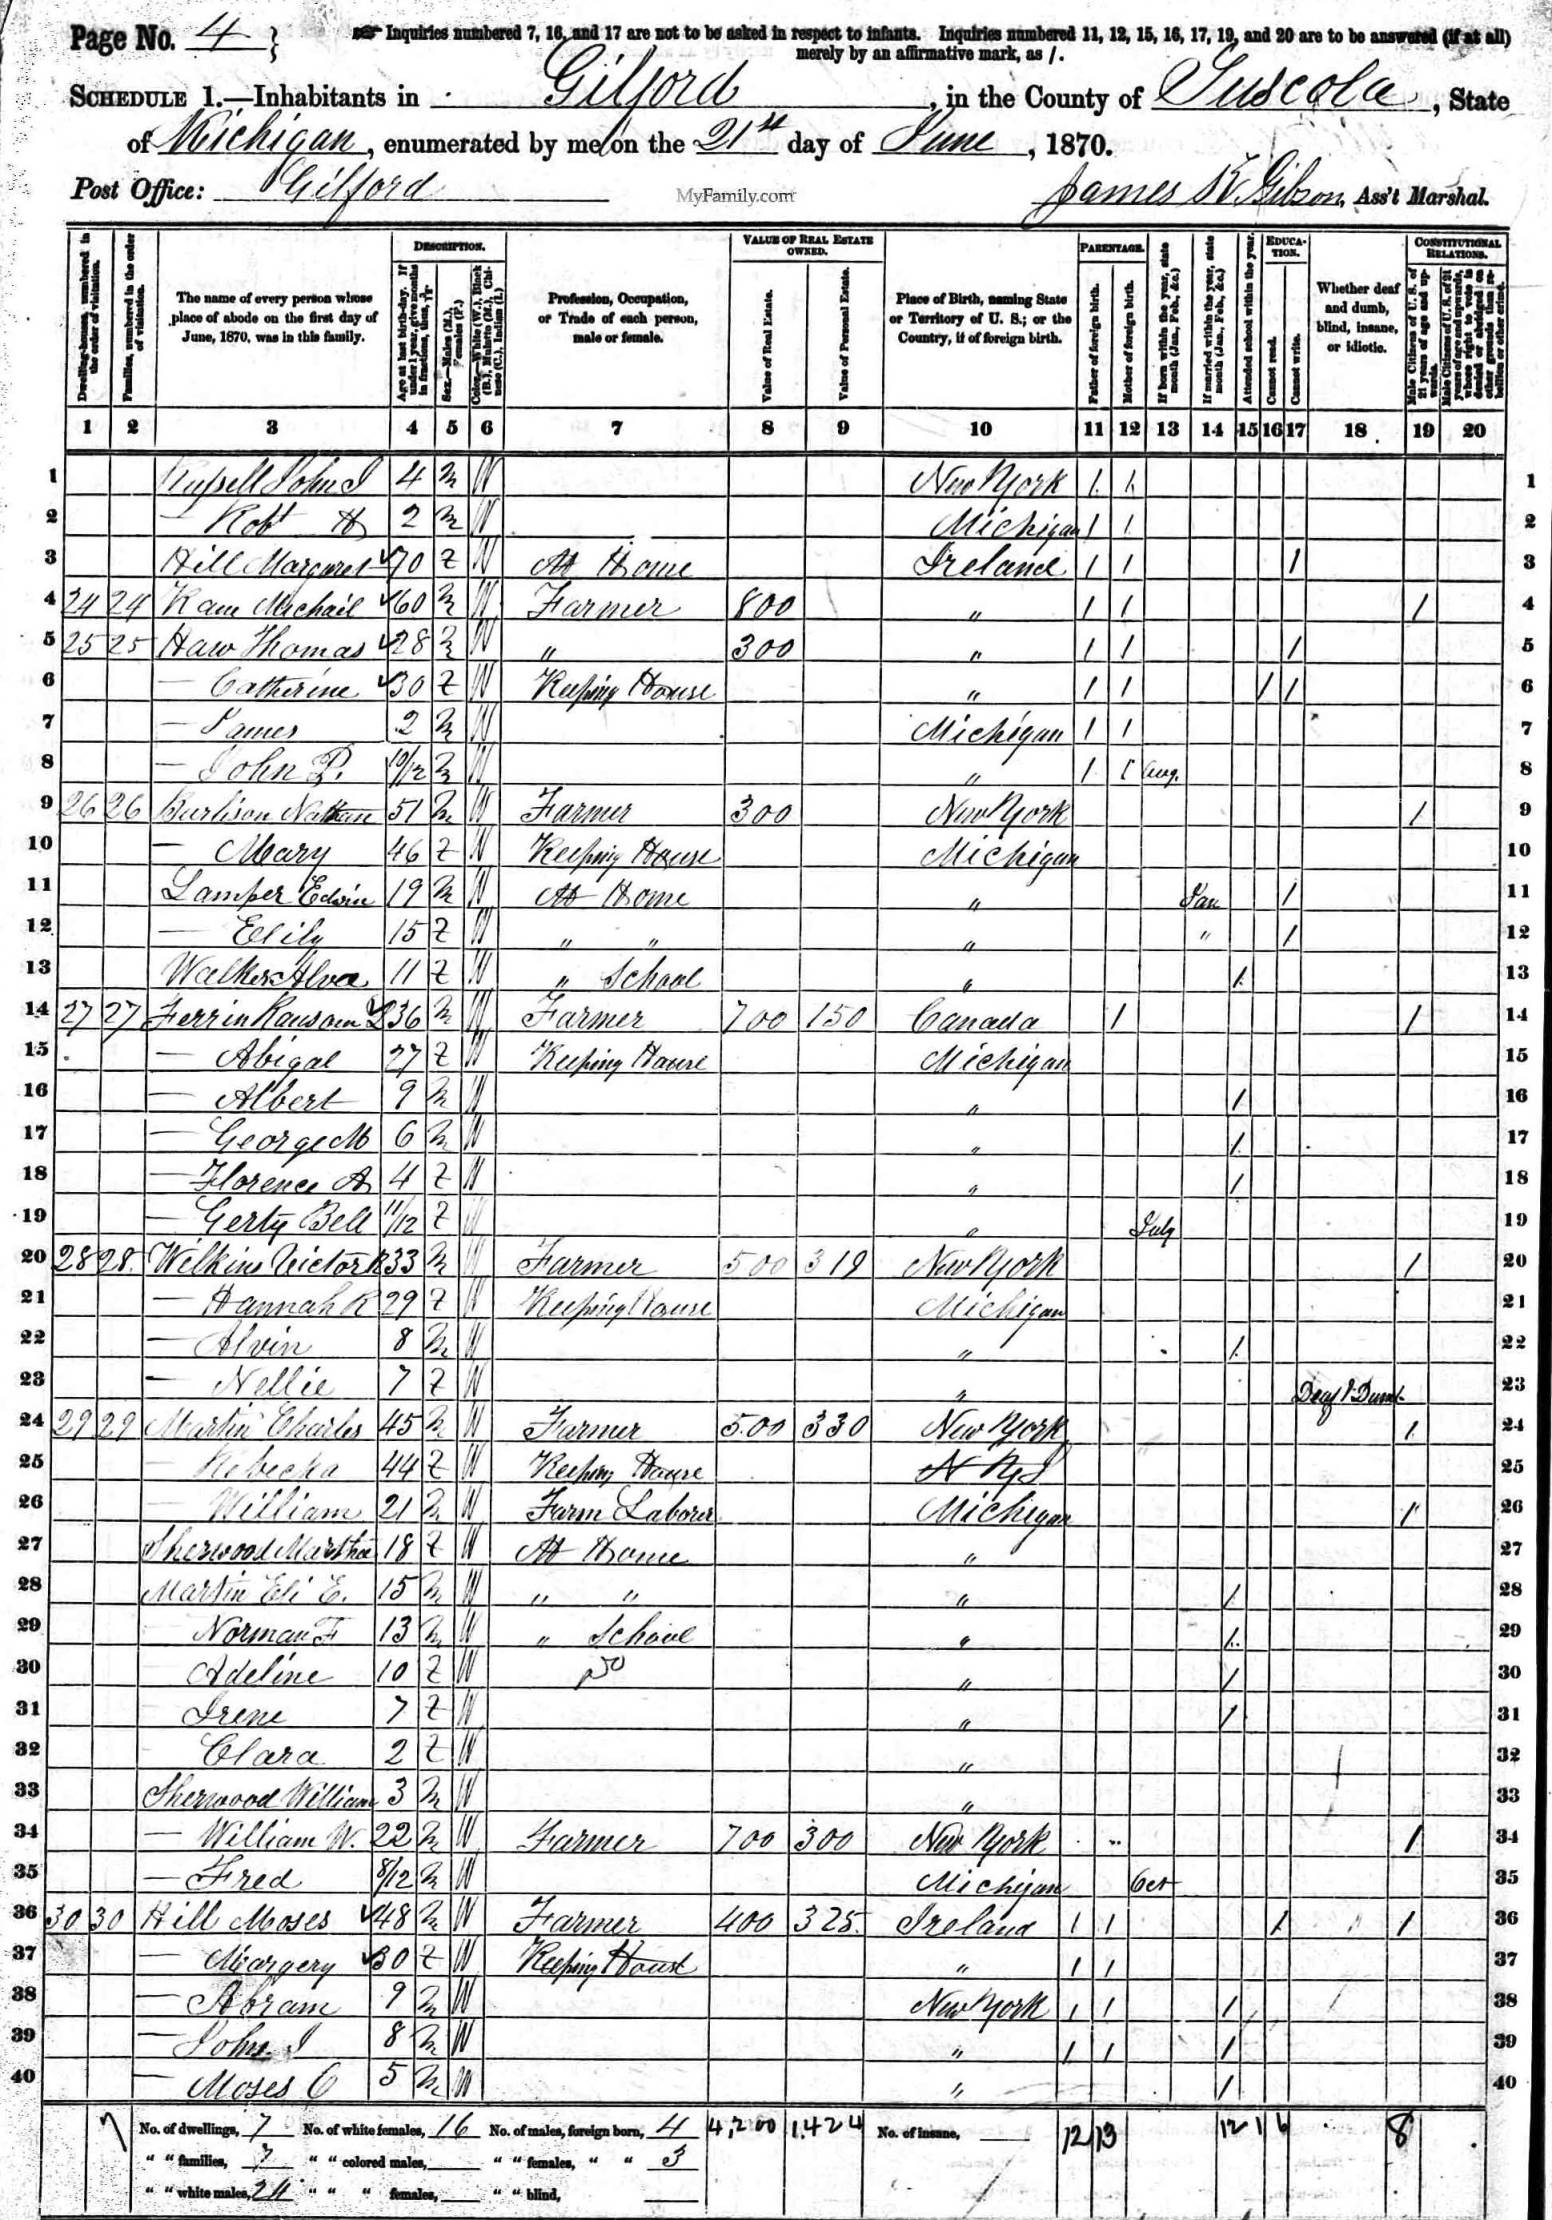 Page No. 4
Inquiries numbered 7, 16, and 17 are not to be asked in respect to infants. Inquiries numbered 11, 12, 15, 16, 17, 19, and 20 are to be answered (if at all)
merely by an affirmative mark, as /.
SCHEDULE 1.—Inhabitants in Gilford, in the County of Tuscola, State
of Michigan, enumerated by me on the 21st day of June, 1870.
Post Office: Gilford MyFamily.com James K. Gibson, Ass't Marshal.
Dwelling-houses, numbered in the order of visitation.
Families, numbered in the order of visitation.
The name of every person whose place of abode on the first day of June, 1870, was in this family.
DESCRIPTION.
Age at last birth-day. If under 1 year, give months in fractions, thus, 3/12
Sex.—Males (M.), Females (F.)
Color.—White (W.), Black (B.), Mulatto (M.), Chinese (C.), Indian (I.)
Profession, Occupation, or Trade of each person, male or female.
VALUE OF REAL ESTATE OWNED.
Value of Real Estate.
Value of Personal Estate.
Place of Birth, naming State or Territory of U. S.; or the Country, if of foreign birth.
PARENTAGE.
Father of foreign birth.
Mother of foreign birth.
If born within the year, state month (Jan., Feb., &c.)
If married within the year, state month (Jan., Feb., &c.)
Attended school within the year.
EDUCATION.
Cannot read.
Cannot write.
Whether deaf and dumb, blind, insane, or idiotic.
CONSTITUTIONAL RELATIONS.
Male Citizens of U. S. of 21 years of age and upwards.
Male Citizens of U. S. of 21 years of age and upwards, whose right to vote is denied or abridged on other grounds than rebellion or other crime.
1 2 3 4 5 6 7 8 9 10 11 12 13 14 15 16 17 18 19 20
1 Russell John J 4 M W New York 1 1 1
2 — Robt H 2 M W Michigan 1 1 2
3 Hill Margaret 70 F W At Home Ireland 1 1 1 3
4 24 24 Kain Michail 60 M W Farmer 800 " 1 1 1 4
5 25 25 Haw Thomas 28 M W " 300 " 1 1 1 5
6 — Catherine 30 F W Keeping House " 1 1 1 1 6
7 — James 2 M W Michigan 1 1 7
8 — John P. 10/12 M W " 1 1 Aug. 8
9 26 26 Burlison Nathan 51 M W Farmer 300 New York 1 9
10 — Mary 46 F W Keeping House Michigan 10
11 Lamper Edwin 19 M W At Home " Jan 1 11
12 — 15 F W " " " " 1 12
13 Walker Alva 11 F W " School " 1 13
14 27 27 Ferrin Ransom L 36 M W Farmer 700 150 Canada 1 1 14
15 — Abigal 27 F W Keeping House Michigan 15
16 — Albert 9 M W " 1 16
17 — George M 6 M W " 1 17
18 — Florence A 4 F W " 1 18
19 — Gerty Bell 11/12 F W " July 19
20 28 28 Wilkins Victor R 33 M W Farmer 500 319 New York 1 20
21 — Hannah R 29 F W Keeping House Michigan 21
22 — Alvin 8 M W " 1 22
23 — Nellie 7 F W " Deaf & Dumb 23
24 29 29 Martin Charles 45 M W Farmer 500 330 New York 1 24
25 — Rebecka 44 F W Keeping House N Y 25
26 — William 21 M W Farm Laborer Michigan 1 26
27 Sherwood Martha 18 F W At Home " 27
28 Martin Eli E. 15 M W " " " 1 28
29 Norman F 13 M W " School " 1 29
30 Adeline 10 F W Do " 1 30
31 Irene 7 F W " 1 31
32 Clara 2 F W " 32
33 Sherwood William 3 M W " 33
34 — William W. 22 M W Farmer 700 300 New York 1 34
35 — Fred 8/12 M W Michigan Oct 35
36 30 30 Hill Moses 48 M W Farmer 400 325 Ireland 1 1 1 1 36
37 — Margery 30 F W Keeping House " 1 1 37
38 — Abram 9 M W New York 1 1 1 38
39 — John J 8 M W " 1 1 1 39
40 — Moses C 5 M W " 1 40
7 No. of dwellings, 7 No. of white females, 16 No. of males, foreign born, 4 4,200 1,424 No. of insane, 12 13 12 1 6 8
" " families, 7 " " colored males, " " females, " " 3
" " white males, 24 " " " females, " " blind,